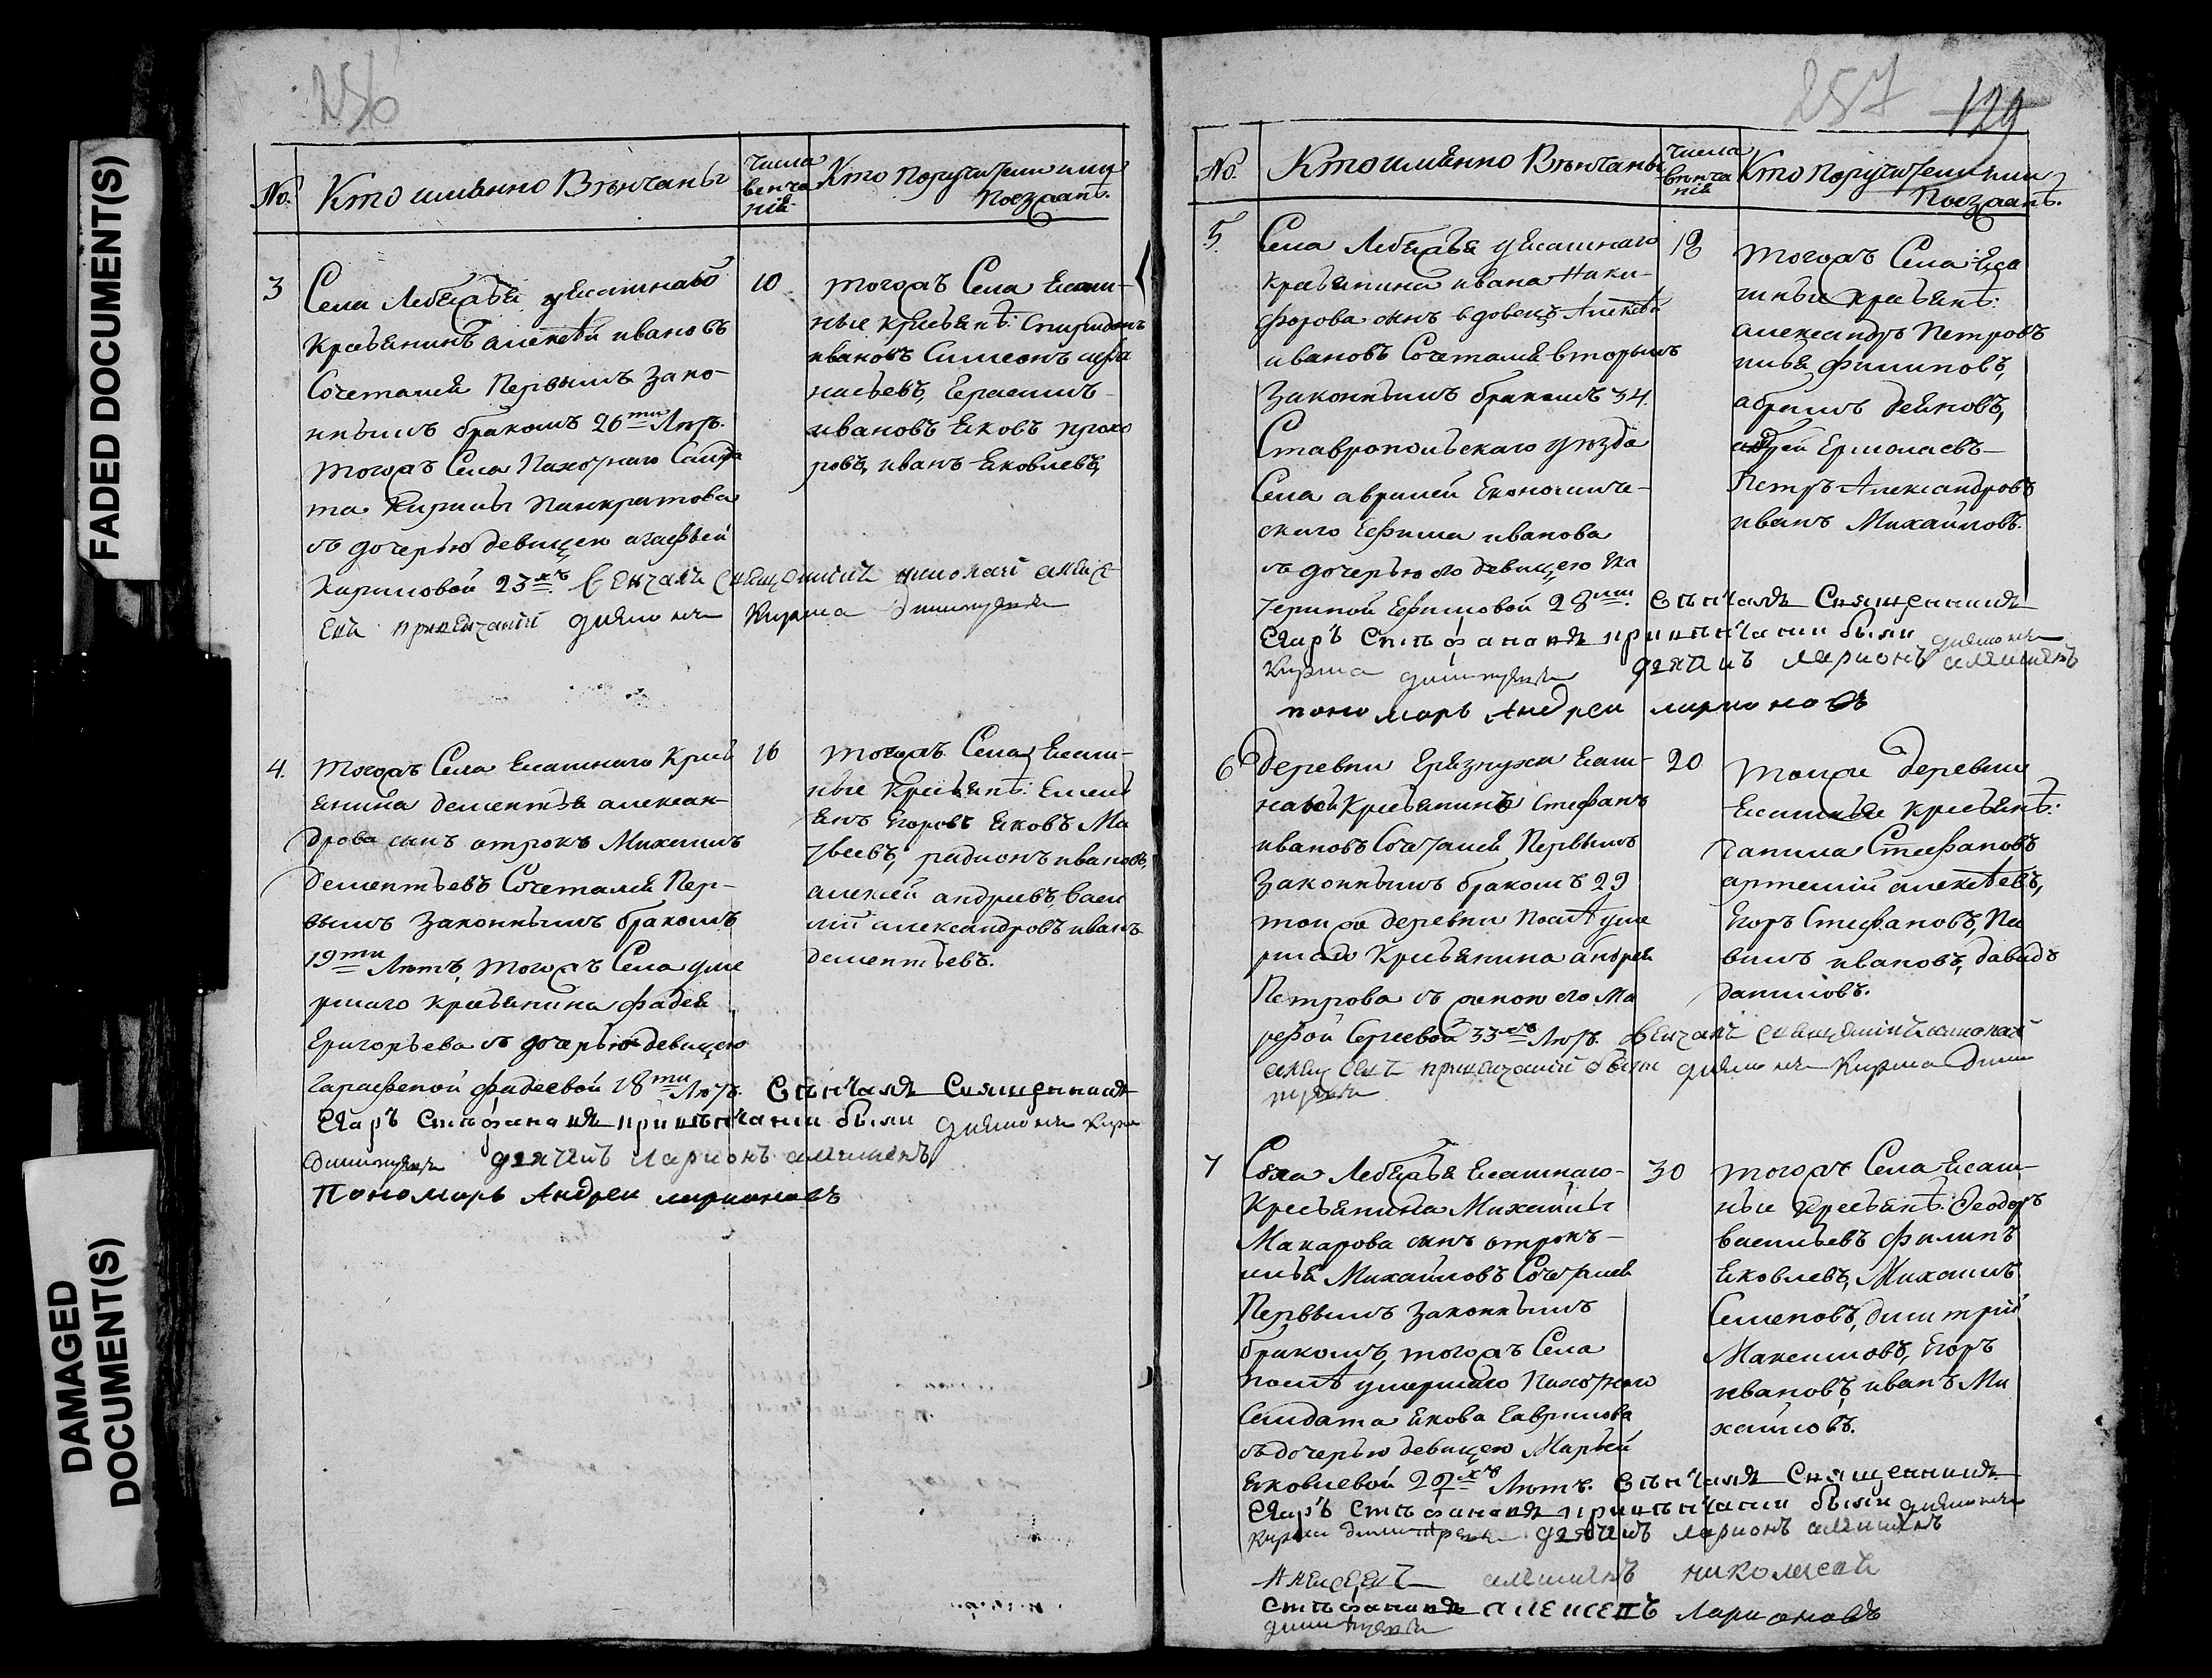 FADED DOCUMENT(S)
DAMAGED
DOCUMENT(S)
256
No.
Кто имянно Венчаны
Числа
венча
нія
Кто Поручители или
Поезжанѣ.
3
Села Лебяжья ясашнаго
Крестьянинъ алексѣй ивановъ
Сочетался Первымъ зако-
ннымъ бракомъ 26ти лѣтъ.
тогожъ Села Пахотнаго Салда
та Кирилы Панкратова
съ дочерью девицею агафьей
Кириловой 23хъ венчалъ священникъ николай алексе
евъ привенчаніи дьячокъ Кирила димитриевъ
10
тогожъ Села ясаш-
ные кресьянѣ: Спиридонъ
ивановъ Симеонъ афа
насьевъ, Герасимъ
ивановъ яковъ прохо
ровъ, иванъ яковлевъ,
4.
тогожъ Села ясашнаго Кресь
янина дементья алексан-
дрова сынъ отрокъ Михаилъ
дементьевъ Сочетался Пер-
вымъ законнымъ бракомъ
19ти лѣтъ, тогожъ Села уме
ршаго кресьянина фадея
Григорьева съ дочерью девицею
Гарафеной фадеевой 18ти лѣтъ. Венчалъ Священникъ
Егаръ Стефановъ привенчании были дьячокъ Кирила
димитриевъ дьячикъ Ларионъ
Пономарь Андреи ларионовъ
16
тогожъ Села ясаш-
ные Кресьянѣ: Емель
янъ Егоровъ яковъ Ма
твеевъ, радионъ ивановъ,
алексей андреевъ, васи
лий александровъ иванъ
дементьевъ.
257
129
No.
Кто имянно Венчаны
Числа
венча
нія
Кто Поручители или
Поезжанѣ.
5.
Села Лебяжья ясашнаго
Кресьянина ивана Ники-
форова сынъ вдовецъ Алексѣй
ивановъ Сочетался вторымъ
Законнымъ бракомъ 34.
Ставропольскаго уезда
Села авралей Економиче-
скаго Ефима иванова
съ дочерью ево девицею Ека
териной Ефимовой 28ми. Венчалъ Священникъ
Егаръ Стефановъ привенчании были дьячокъ
Кирила димитриевъ дьячикъ ларионъ
пономарь Андреи ларионовъ
18
тогожъ Села яса
шные кресьянѣ:
александръ Петровъ
илья Филиповъ,
абрамъ
андрей Ермолаевъ
Петръ Александровъ
иванъ Михайловъ.
6
деревни Грязнухи ясаш-
ной Кресьянинъ Стефанъ
ивановъ Сочетался Первымъ
Законнымъ бракомъ 29
тойже деревни послѣ уме
ршаго Кресьянина андрея
Петрова съ женою ево Ма
рефой Сергеевой 33хъ лѣтъ. Венчалъ священникъ николай
алексеевъ привенчаніи были дьячокъ Кирила дими
триевъ
20
тойже деревни
ясашные кресьянѣ:
данила Стефановъ
артемий алексѣевъ,
Егоръ Стефановъ, Па
велъ ивановъ, давидъ
даниловъ.
7
Села Лебяжья ясашнаго
Кресьянина Михаилы
Макарова сынъ отрокъ
илья Михайловъ Сочетался
Первымъ Законнымъ
бракомъ, тогожъ Села
послѣ умершаго Пахотнаго
Салдата якова Гаврилова
съ дочерью девицею Марьей
яковлевой 22хъ лѣтъ. Венчалъ Священникъ
Егаръ Стефановъ привенчании были дьячокъ
Кирила димитриевъ дьячикъ ларионъ
30
тогожъ Села ясаш-
ные кресьянѣ: Феодоръ
васильевъ филипъ
яковлевъ, Михаилъ
Семеновъ, димитрий
Максимовъ, Егоръ
ивановъ, иванъ Ми
хаиловъ.
николаей
Стефановъ алексепъ Ларионовъ
димитриевъ